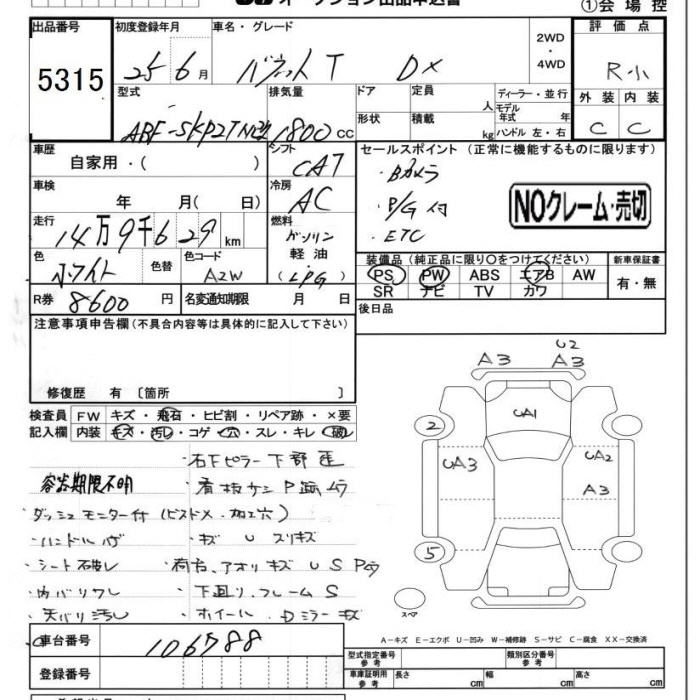 オークション出品申込書
①会場控
出品番号
5315
初度登録年月
25 6月
車名・グレード
バネット T DX
2WD
・
4WD
評価点
R-小
型式
ABF-SKP2TN改
排気量
1800cc
ドア
形状
定員
人
積載
kg
ディーラー・並行
モデル年式 年
ハンドル 左・右
外装
C
内装
C
車歴
自家用・( )
シフト
CAT
セールスポイント (正常に機能するものに限ります)
・Bカメラ
・P/G付
・ETC
NOクレーム・売切
車検
年 月( 日)
冷房
AC
走行
14万9千629km
燃料
ガソリン
軽油
(LPG)
色
ホワイト
色替
色コード
A2W
装備品 (純正品に限り○をつけてください)
PS PW ABS エアB AW
SR ナビ TV カワ
新車保証書
有・無
R券
8600円
名変通知期限
月 日
後日品
注意事項申告欄(不具合内容等は具体的に記入して下さい)
修復歴 有 〔箇所 〕
検査員
記入欄
FW キズ・飛石・ヒビ割・リペア跡・×要
内装 キズ・汚レ・コゲ・穴・スレ・キレ・破レ
・右下ピラー下部
容器期限不明
・看板サシP跡ムラ
・ダッシュモニター付(ビスドメ・加工穴)
・ハンドルハゲ
・キズ U スリキズ
・シート破レ
・荷台、アオリキズ U S P
・内バリワレ
・下廻リ、フレームS
・天バリ汚レ
・ホイール・Dミラーキズ
A3
U2
A3
UA1
2
UA3
UA2
A3
5
スペア
A-キズ E-エクボ U-凹み W-補修跡 S-サビ C-腐食 XX-交換済
車台番号
106788
登録番号
型式指定番号
参考
類別区分番号
参考
車庫証明用
参考
長さ
cm
幅
cm
高さ
cm